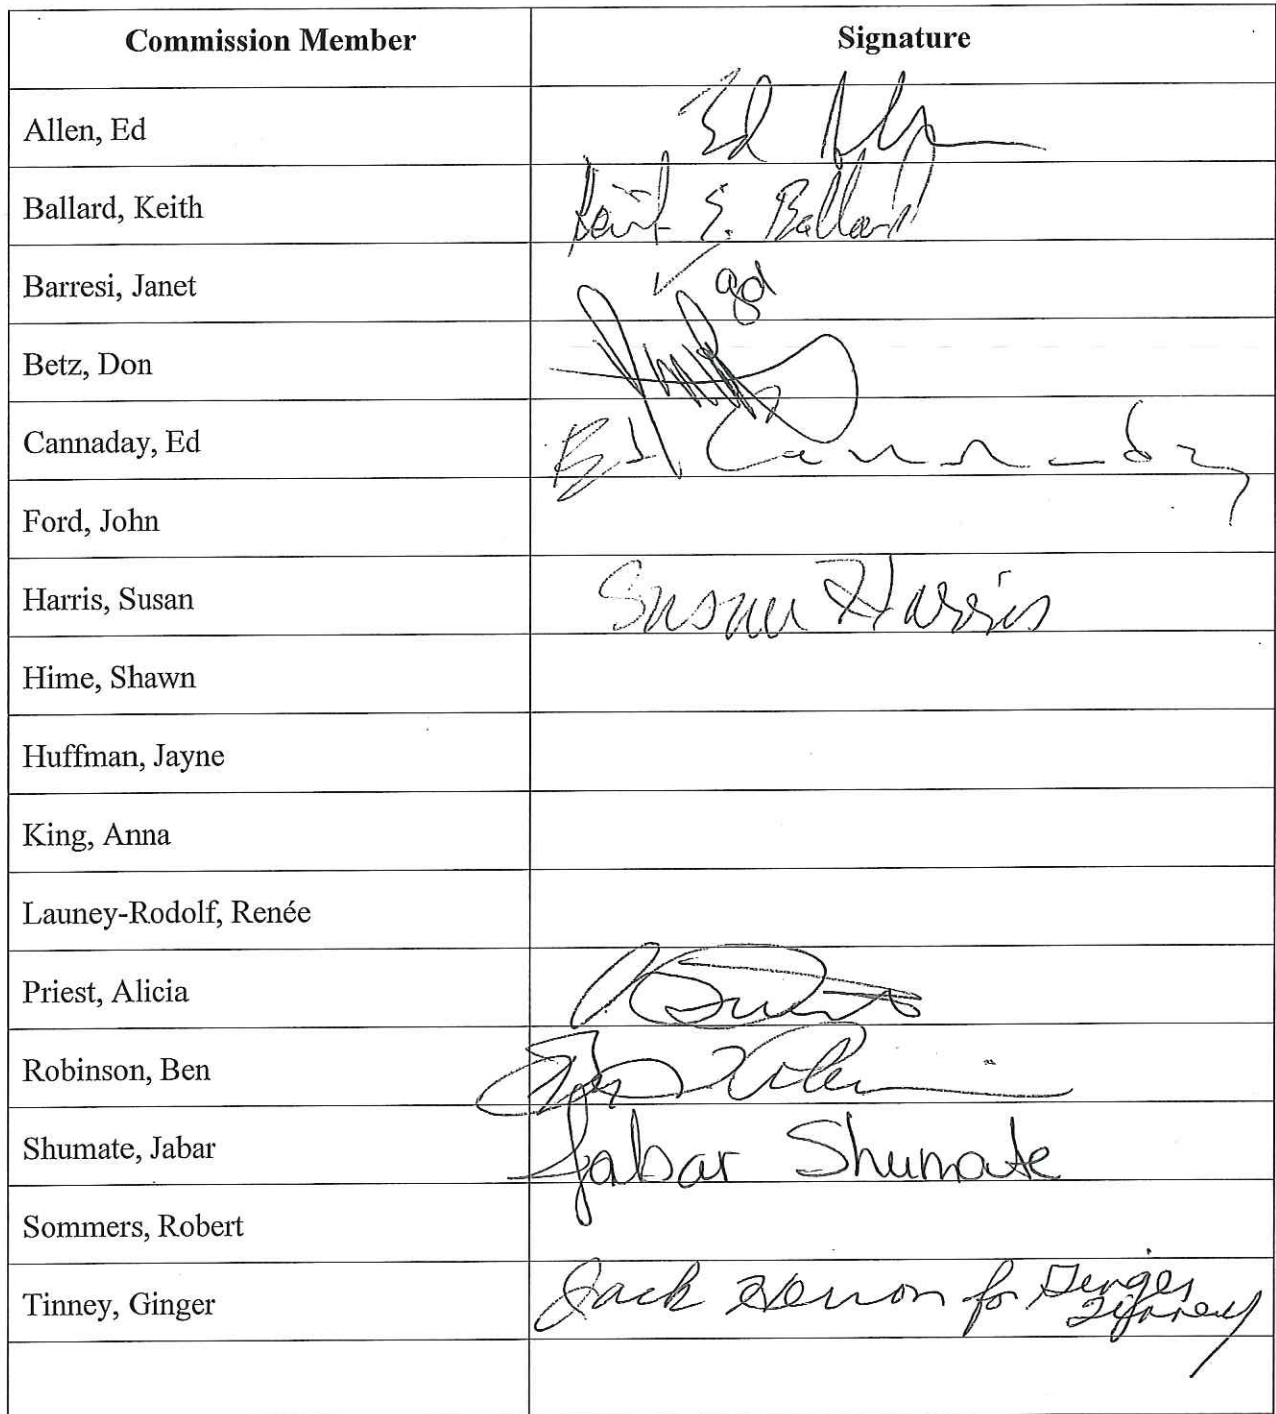 Commission Member Signature
Allen, Ed Ed
Ballard, Keith Keith E. Ballard
Barresi, Janet
Betz, Don
Cannaday, Ed Ed Cannaday
Ford, John
Harris, Susan Susan Harris
Hime, Shawn
Huffman, Jayne
King, Anna
Launey-Rodolf, Renée
Priest, Alicia
Robinson, Ben
Shumate, Jabar Jabar Shumate
Sommers, Robert
Tinney, Ginger Jack Herron for Ginger
Tinney